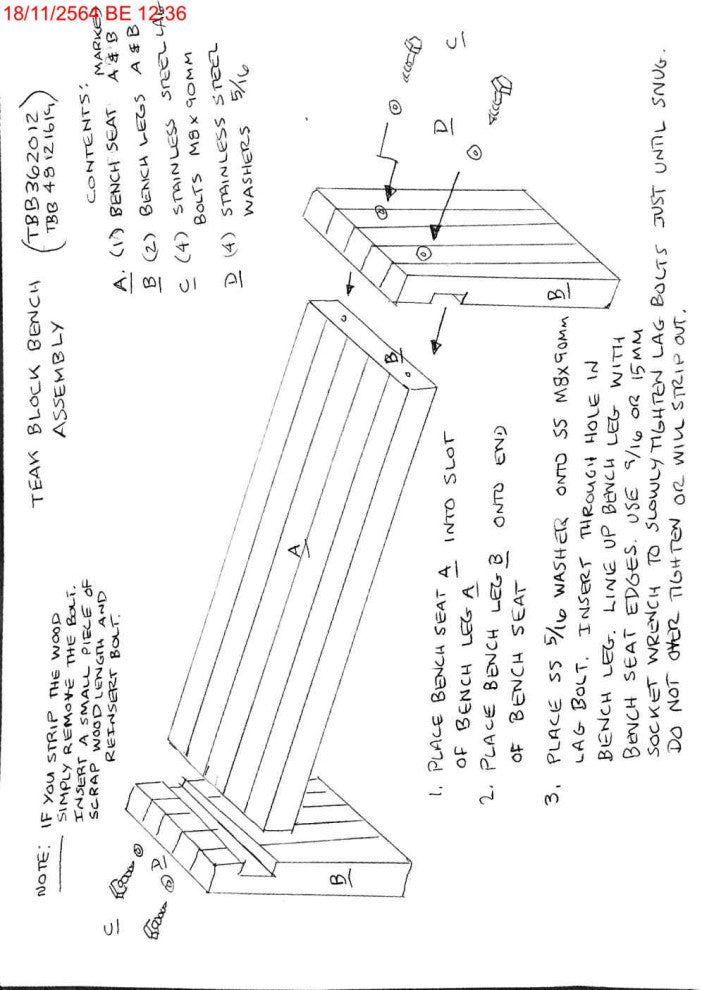 18/11/2564 BE 12:36
TEAK BLOCK BENCH (TBB362012
TBB 48121614)
ASSEMBLY
CONTENTS: MARKED
A. (1) BENCH SEAT A & B
B (2) BENCH LEGS A & B
C (4) STAINLESS STEEL LAG
BOLTS M8 X 90MM
D (4) STAINLESS STEEL
WASHERS 5/16
NOTE: IF YOU STRIP THE WOOD
SIMPLY REMOVE THE BOLT.
INSERT A SMALL PIECE OF
SCRAP WOOD LENGTH AND
REINSERT BOLT.
C
D
B
A
B
B
C
D
1. PLACE BENCH SEAT A INTO SLOT
OF BENCH LEG A
2. PLACE BENCH LEG B ONTO END
OF BENCH SEAT
3. PLACE SS 5/16 WASHER ONTO SS M8X90MM
LAG BOLT. INSERT THROUGH HOLE IN
BENCH LEG. LINE UP BENCH LEG WITH
BENCH SEAT EDGES. USE 9/16 OR 15MM
SOCKET WRENCH TO SLOWLY TIGHTEN LAG BOLTS JUST UNTIL SNUG.
DO NOT OVER TIGHTEN OR WILL STRIP OUT.